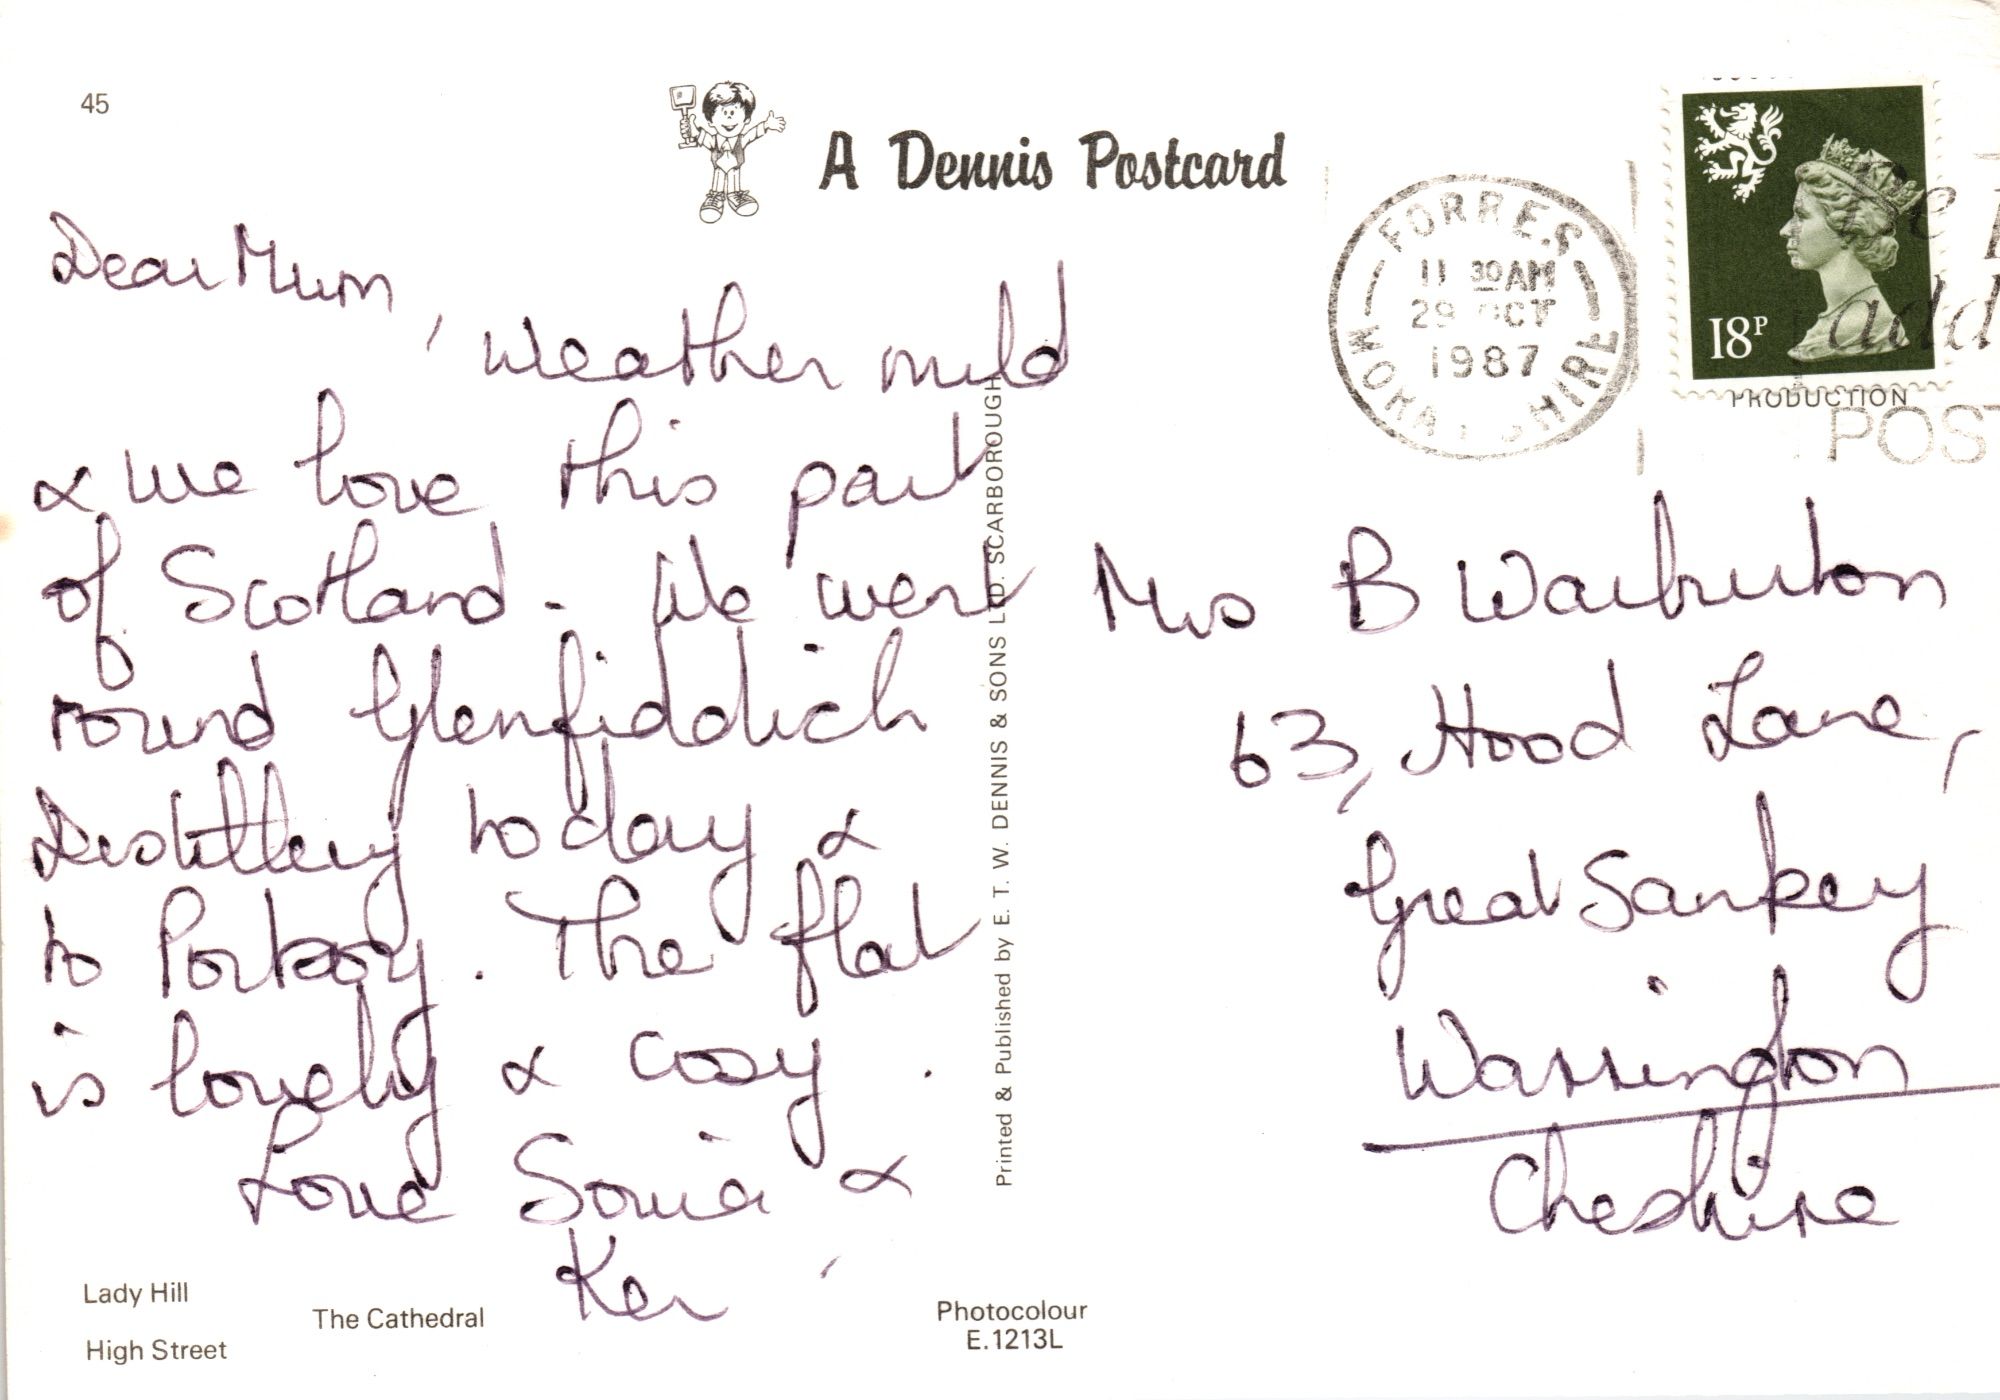 45
A Dennis Postcard
Dear Mum,
Weather mild
& we love this part
of Scotland. We went
round Glenfiddich
Distillery today &
to Portsoy. The flat
is lovely & cosy.
Love Sonia &
Ken
Lady Hill
The Cathedral
High Street
Photocolour
E.1213L
Printed & Published by E. T. W. DENNIS & SONS LTD. SCARBOROUGH
FORRES
11 30AM
29 OCT
1987
MORAYSHIRE
18P
add
PRODUCTION
POST
Mrs B Warburton
63, Hood Lane,
Great Sankey
Warrington
Cheshire